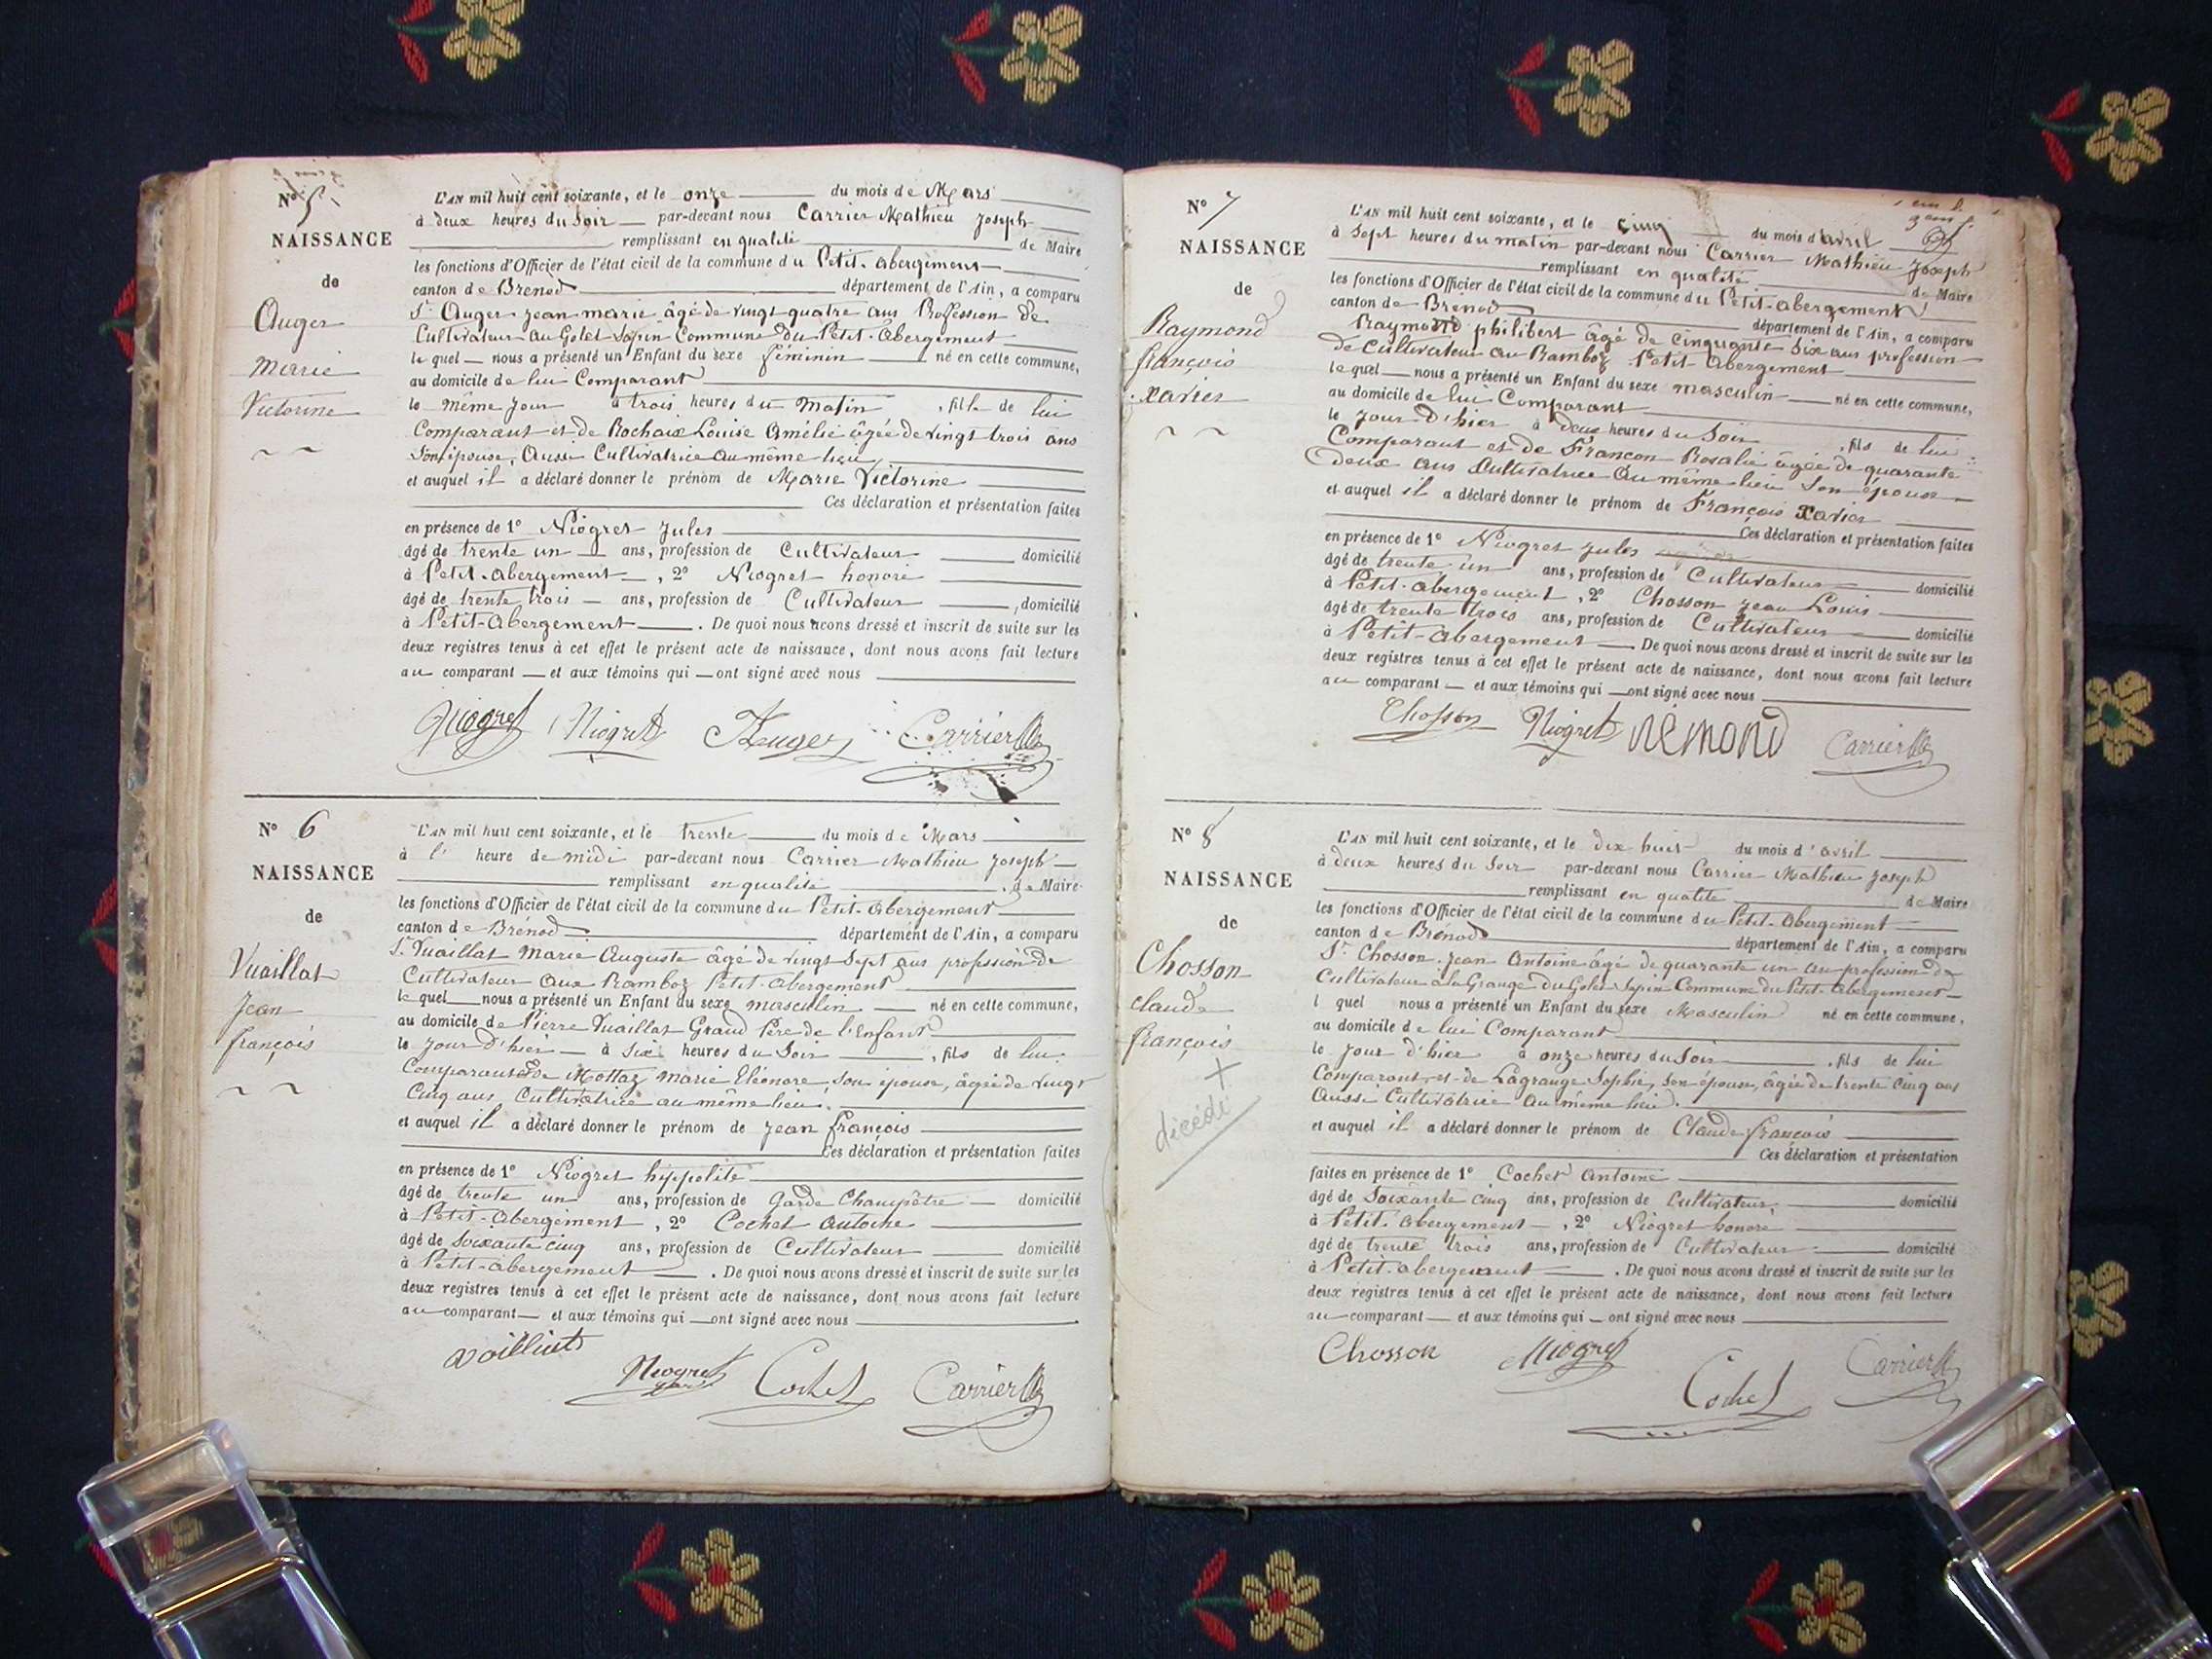 N° 5
NAISSANCE
de
Auger
Marie
Victorine
L'AN mil huit cent soixante, et le onze du mois de Mars
à deux heures du Soir par-devant nous Carrier Mathieu Joseph
remplissant en qualité de Maire
les fonctions d'Officier de l'état civil de la commune du Petit-abergement
canton de Brénod département de l'Ain, a comparu
Sr Auger jean marie âgé de vingt quatre ans Proffession de
Cultivateur au Golet Sapin Commune du Petit-Abergement
lequel nous a présenté un Enfant du sexe féminin né en cette commune,
au domicile de lui Comparant
le même jour à trois heures du Matin , fille de lui
Comparant et de Rochaix Louise Amélie âgée de vingt trois ans
Son épouse, Aussi Cultivatrice au même lieu
et auquel il a déclaré donner le prénom de Marie Victorine
Ces déclaration et présentation faites
en présence de 1° Niogret Jules
âgé de trente un ans, profession de Cultivateur domicilié
à Petit-Abergement , 2° Niogret honoré
âgé de trente trois ans, profession de Cultivateur , domicilié
à Petit-Abergement . De quoi nous avons dressé et inscrit de suite sur les
deux registres tenus à cet effet le présent acte de naissance, dont nous avons fait lecture
au comparant et aux témoins qui ont signé avec nous
Niogret Niogret Auger Carrier
N° 6
NAISSANCE
de
Vuaillat
Jean
françois
L'AN mil huit cent soixante, et le trente du mois de Mars
à l' heure de midi par-devant nous Carrier Mathieu Joseph
remplissant en qualité de Maire
les fonctions d'Officier de l'état civil de la commune du Petit-Abergement
canton de Brénod département de l'Ain, a comparu
Sr Vuaillat Marie Auguste âgé de vingt Sept ans profession de
Cultivateur aux Ramboz Petit-abergement
lequel nous a présenté un Enfant du sexe masculin né en cette commune,
au domicile de Pierre Vuaillat Grand Père de l'Enfant
le jour d'hier à Six heures du Soir , fils de lui
Comparant et de Mottaz Marie Eléonore son épouse, âgée de vingt
Cinq ans, Cultivatrice au même lieu.
et auquel il a déclaré donner le prénom de Jean françois
Ces déclaration et présentation faites
en présence de 1° Niogret hippolite
âgé de trente un ans, profession de Garde Champêtre domicilié
à Petit-Abergement , 2° Cochet Antoine
âgé de Soixante cinq ans, profession de Cultivateur domicilié
à Petit-abergement . De quoi nous avons dressé et inscrit de suite sur les
deux registres tenus à cet effet le présent acte de naissance, dont nous avons fait lecture
au comparant et aux témoins qui ont signé avec nous
Niogret Cochet Carrier
N° 7
NAISSANCE
de
Raymond
françois
xavier
L'AN mil huit cent soixante, et le cinq du mois d'avril
à Sept heures du matin par-devant nous Carrier Mathieu Joseph
remplissant en qualité de Maire
les fonctions d'Officier de l'état civil de la commune du Petit-abergement
canton de Brénod département de l'Ain, a comparu
Raymond philibert âgé de Cinquante Six ans profession
de Cultivateur au Ramboz Petit-Abergement
lequel nous a présenté un Enfant du sexe masculin né en cette commune,
au domicile de lui Comparant
le jour d'hier à deux heures du Soir , fils de lui
Comparant et de Francon Rosalie âgée de quarante
deux ans Cultivatrice au même lieu Son épouse
et auquel il a déclaré donner le prénom de François xavier
Ces déclaration et présentation faites
en présence de 1° Niogret Jules
âgé de trente un ans, profession de Cultivateur domicilié
à Petit-abergement , 2° Chosson Jean Louis
âgé de trente trois ans, profession de Cultivateur domicilié
à Petit-abergement . De quoi nous avons dressé et inscrit de suite sur les
deux registres tenus à cet effet le présent acte de naissance, dont nous avons fait lecture
au comparant et aux témoins qui ont signé avec nous
Chosson Niogret REMOND Carrier
N° 8
NAISSANCE
de
Chosson
claude
françois
décédé
L'AN mil huit cent soixante, et le dix huit du mois d'avril
à deux heures du Soir par-devant nous Carrier Mathieu Joseph
remplissant en qualité de Maire
les fonctions d'Officier de l'état civil de la commune du Petit-Abergement
canton de Brénod département de l'Ain, a comparu
Sr Chosson Jean Antoine âgé de quarante un an profession de
Cultivateur à la Grange du Golet Sapin Commune du Petit-Abergement
l quel nous a présenté un Enfant du sexe Masculin né en cette commune,
au domicile de lui Comparant
le jour d'hier à onze heures du Soir , fils de lui
Comparant et de Lagrange Sophie, son épouse, âgée de trente cinq ans
Aussi Cultivatrice au même lieu.
et auquel il a déclaré donner le prénom de Claude françois
Ces déclaration et présentation
faites en présence de 1° Cochet Antoine
âgé de Soixante cinq ans, profession de Cultivateur, domicilié
à Petit-abergement , 2° Niogret honoré
âgé de trente trois ans, profession de Cultivateur domicilié
à Petit-abergement . De quoi nous avons dressé et inscrit de suite sur les
deux registres tenus à cet effet le présent acte de naissance, dont nous avons fait lecture
au comparant et aux témoins qui ont signé avec nous
Chosson Niogret Cochet Carrier